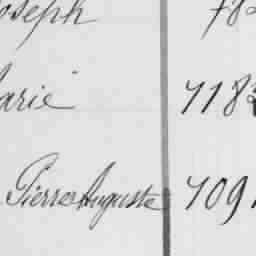 oseph 782
arie 7183
Pierre Auguste 7091